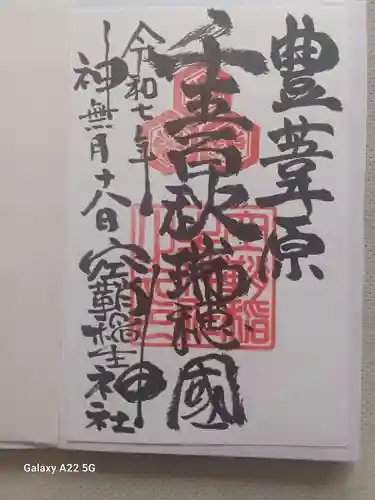 豊葦原
千五百秋瑞穂國
令和七年
神無月十八日
空鞘稲生神社
Galaxy A22 5G